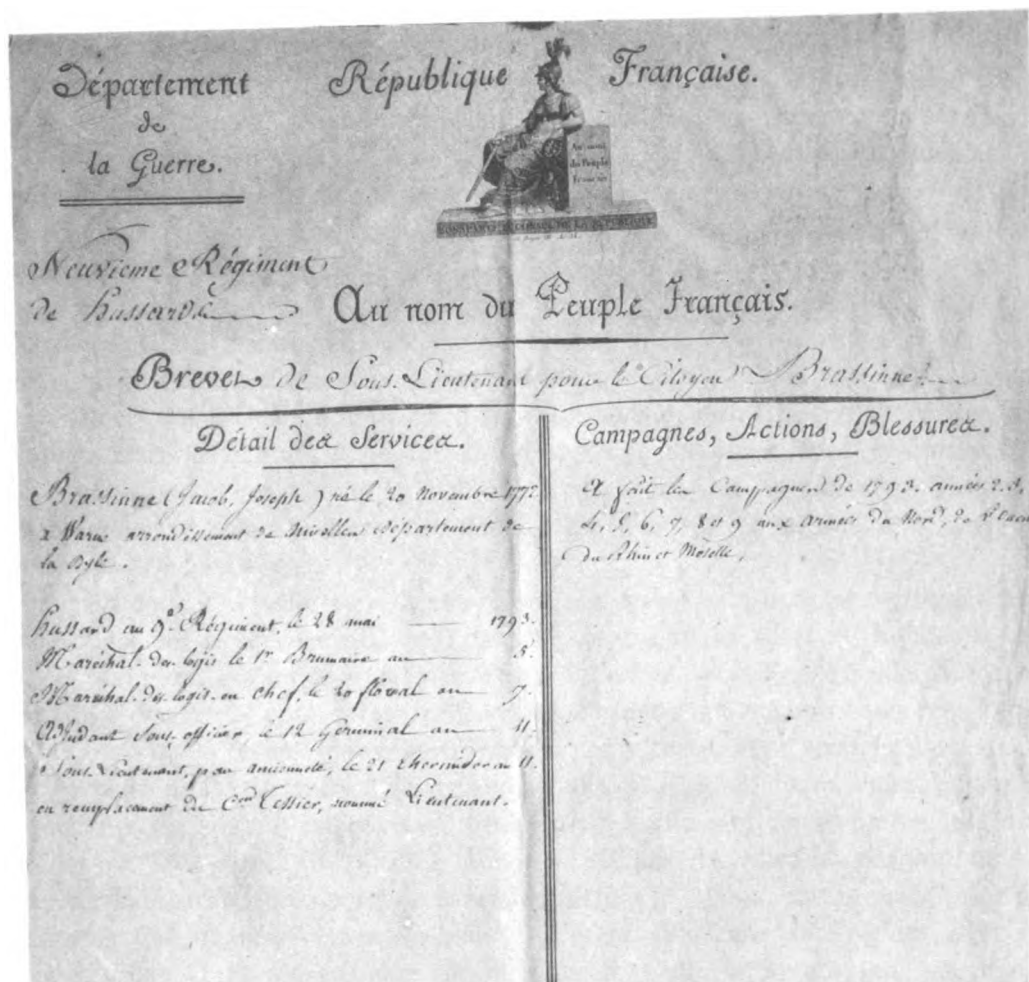 Département
de
la Guerre.
République Française.
Au nom
du Peuple
Français
BONAPARTE 1er CONSUL DE LA REPUBLIQUE
Neuvieme Régiment
de hussards
Au nom du Peuple Français.
Brevet de Sous-Lieutenant pour le Citoyen Brassinne
Détail des Services.
Brassinne (Jacob, Joseph) né le 20 Novembre 1772
a arrondissement de Nivelles Département de
la Dyle.
hussard au 9e. Régiment, le 28 mai 1793.
Maréchal-des-logis le 1er Brumaire an 5.
Maréchal-des-logis-en chef, le 20 floreal an 7.
Adjudant Sous-officier, le 12 Germinal an 11.
Sous-Lieutenant, par ancienneté, le 21 thermidor an 11.
en remplacement du Cen Tessier, nommé Lieutenant.
Campagnes, Actions, Blessures.
A fait les Campagnes de 1793. années 2.3,
4, 5, 6, 7, 8 et 9 aux armées du Nord, de
du Rhin et Moselle.